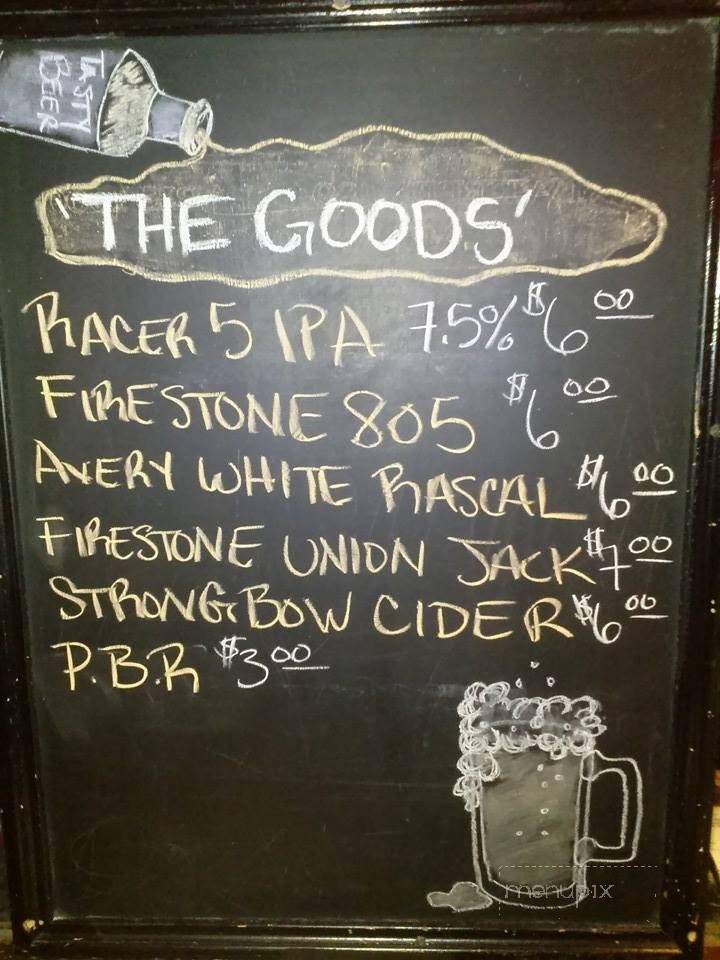 TASTY
BEER
'THE GOODS'
RACER 5 IPA 7.5% $6 00
FIRESTONE 805 $6 00
AVERY WHITE RASCAL $6 00
FIRESTONE UNION JACK $7 00
STRONGBOW CIDER $6 00
P.B.R $3 00
menupix